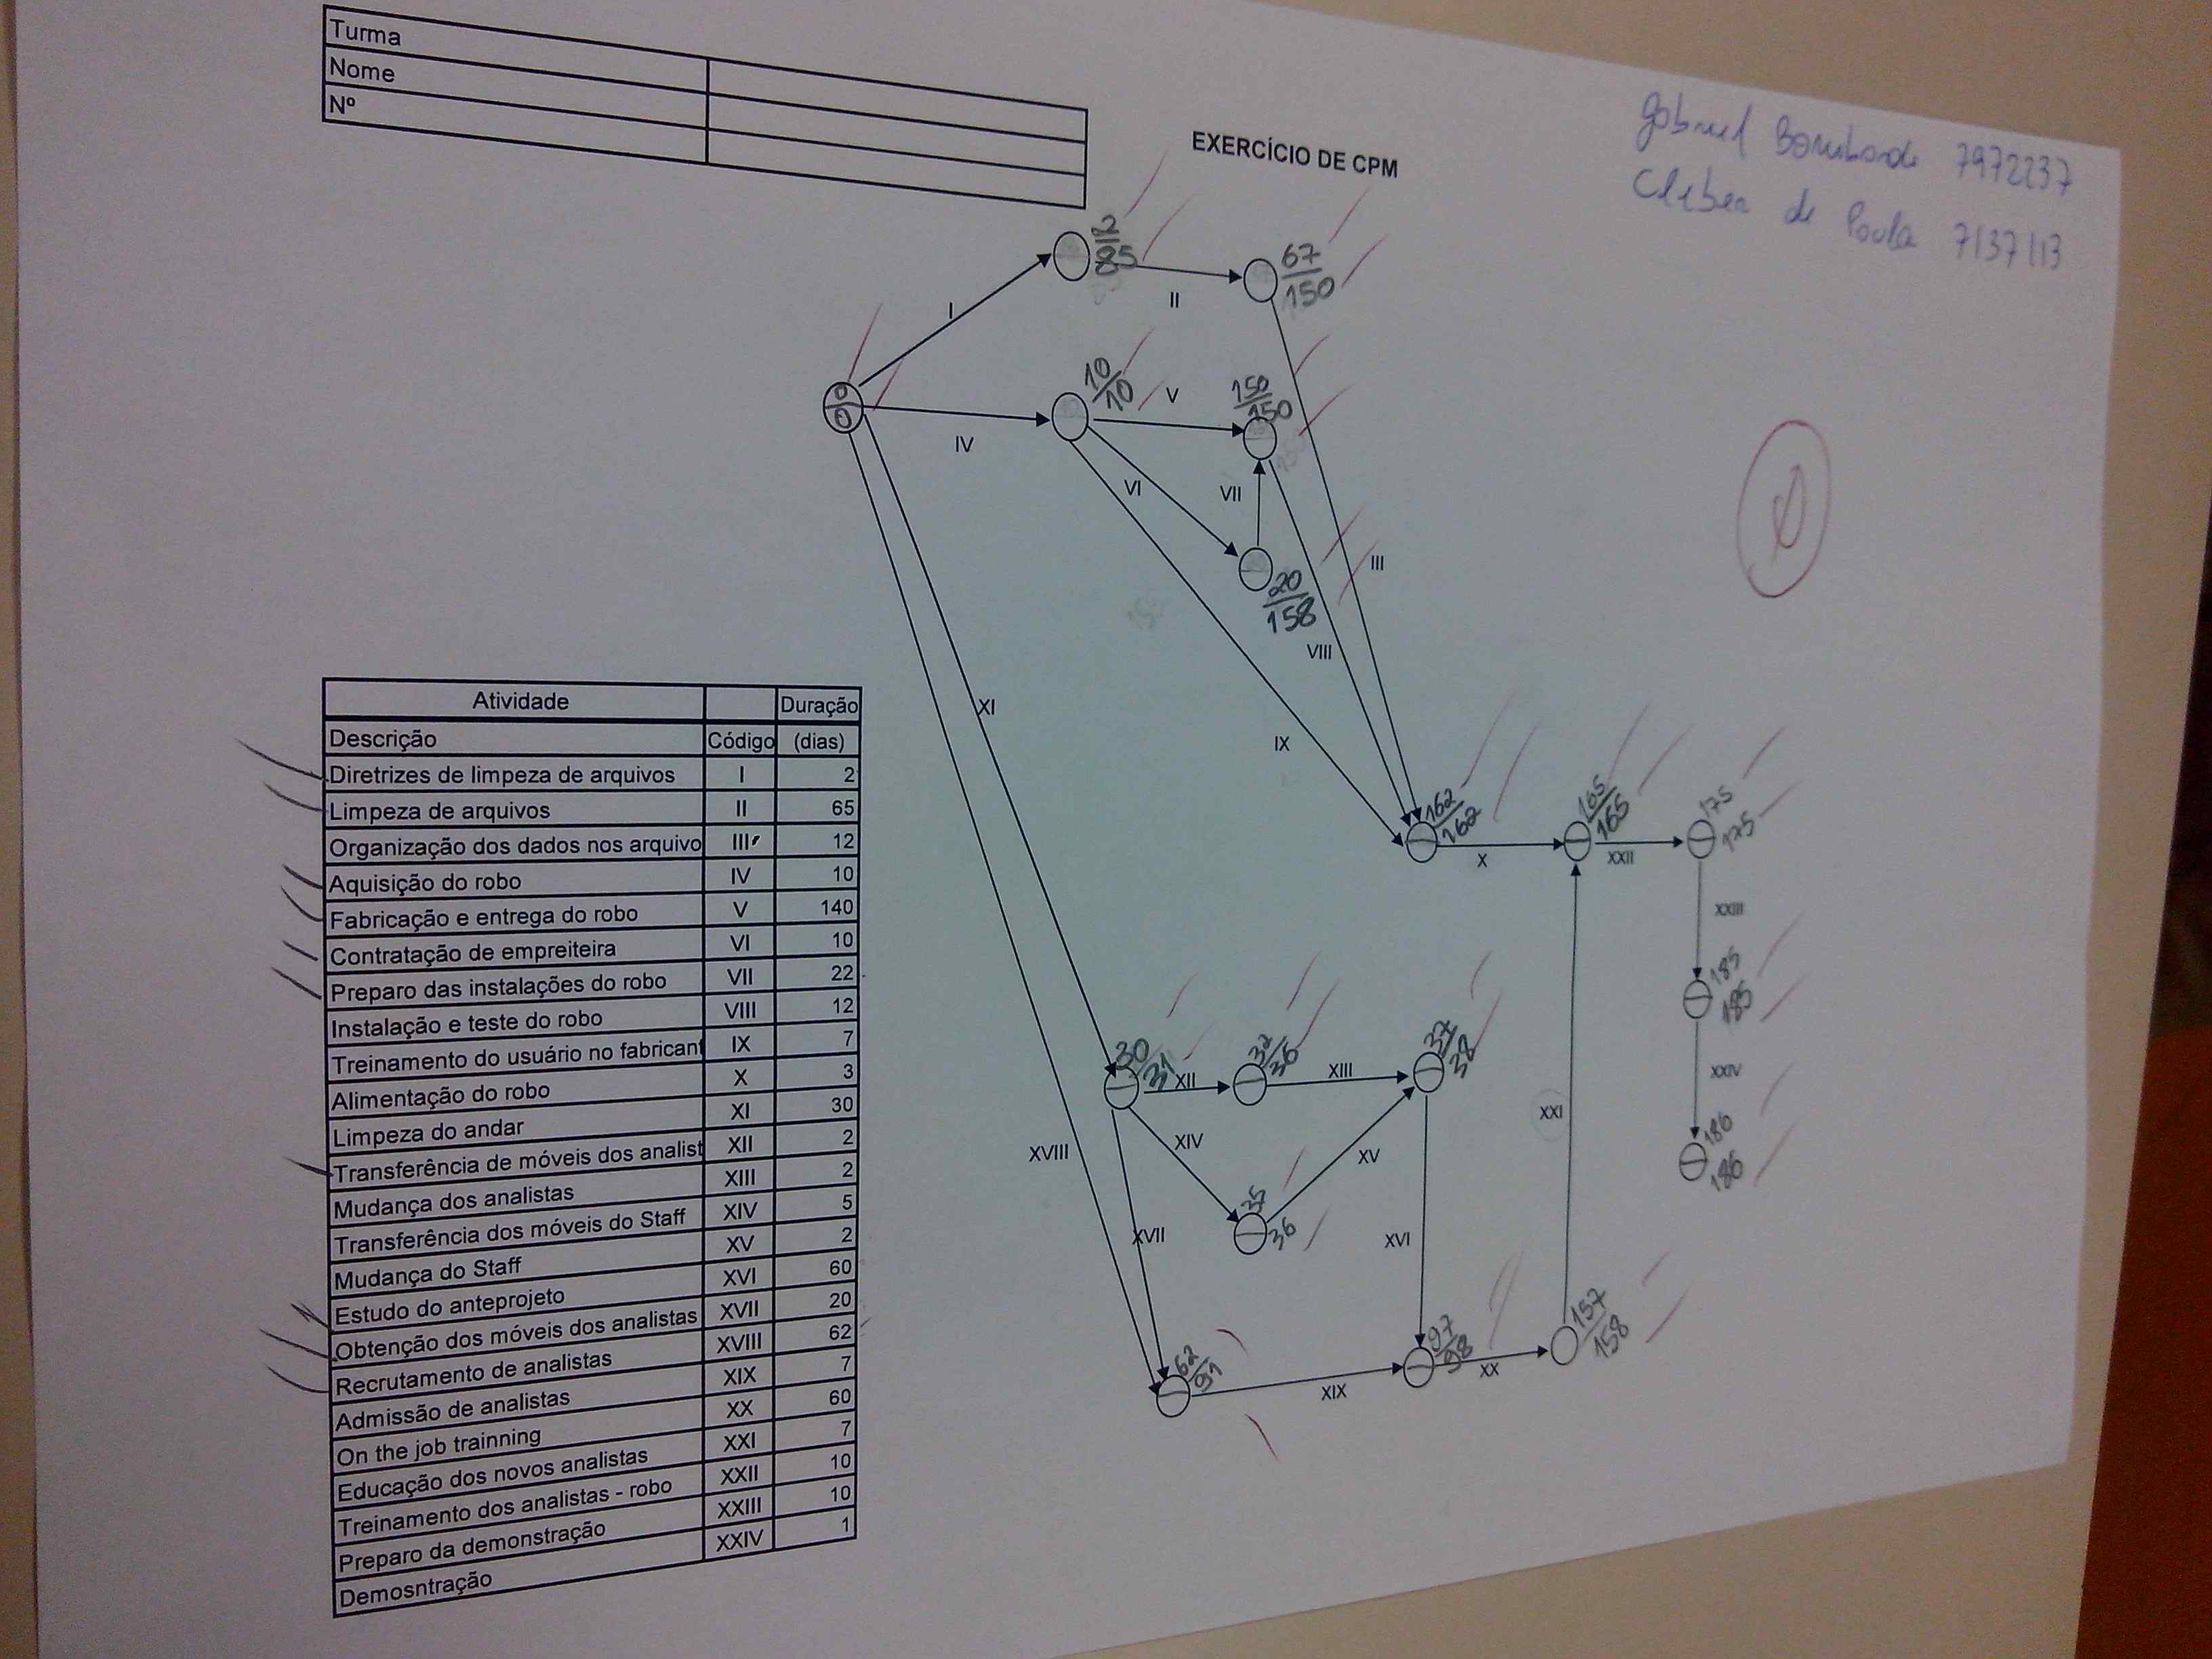 Turma
Nome
Nº
EXERCÍCIO DE CPM
7972237
Cleber de Paula 7137113
0
0
I
2
85
II
67
150
IV
10
10
V
150
150
VI
VII
20
158
III
VIII
IX
XI
162
162
X
165
165
XXII
175
175
XXIII
185
185
XXIV
186
186
30
31
XII
32
36
XIII
37
38
XIV
35
36
XV
XVI
XVII
XVIII
62
91
XIX
97
98
XX
157
158
XXI
Atividade Duração
Descrição Código (dias)
Diretrizes de limpeza de arquivos I 2
Limpeza de arquivos II 65
Organização dos dados nos arquivo III 12
Aquisição do robo IV 10
Fabricação e entrega do robo V 140
Contratação de empreiteira VI 10
Preparo das instalações do robo VII 22
Instalação e teste do robo VIII 12
Treinamento do usuário no fabricant IX 7
Alimentação do robo X 3
Limpeza do andar XI 30
Transferência de móveis dos analist XII 2
Mudança dos analistas XIII 2
Transferência dos móveis do Staff XIV 5
Mudança do Staff XV 2
Estudo do anteprojeto XVI 60
Obtenção dos móveis dos analistas XVII 20
Recrutamento de analistas XVIII 62
Admissão de analistas XIX 7
On the job trainning XX 60
Educação dos novos analistas XXI 7
Treinamento dos analistas - robo XXII 10
Preparo da demonstração XXIII 10
Demosntração XXIV 1